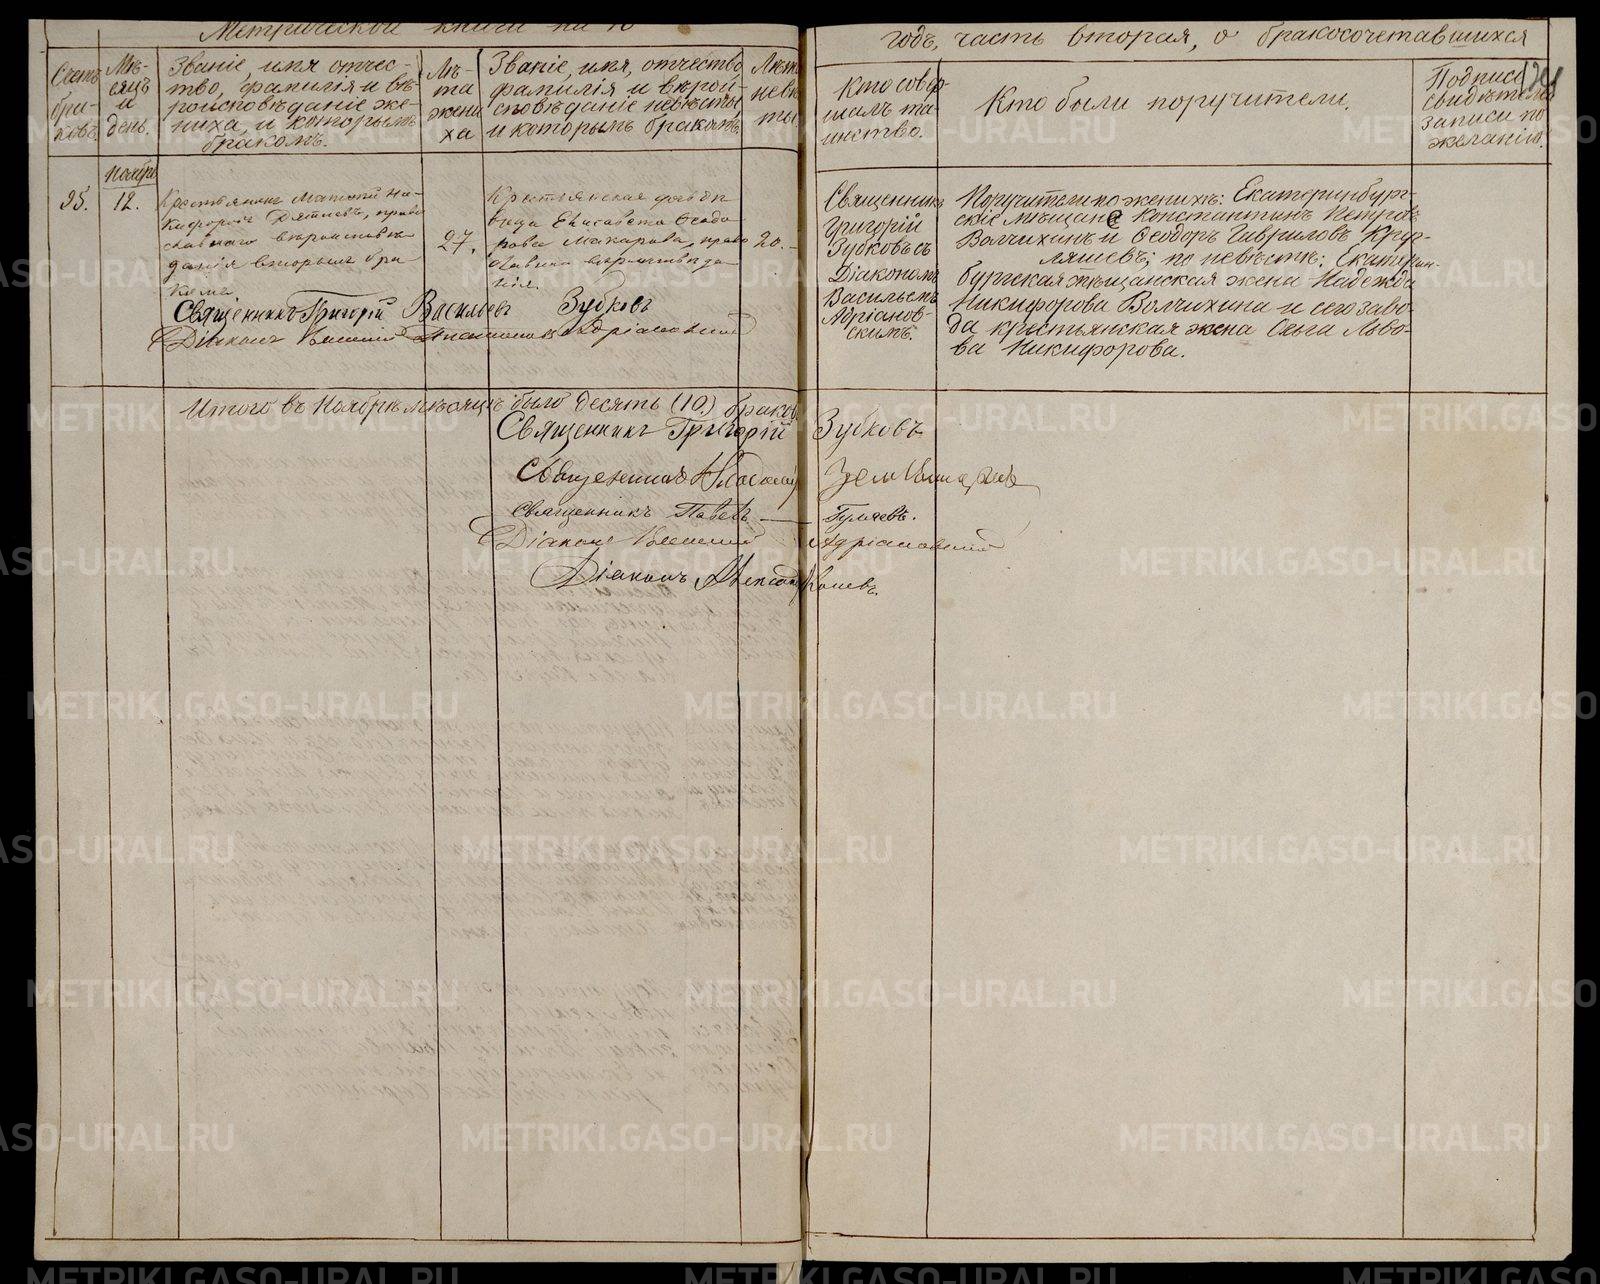 Метрической книги на 18 годъ, часть вторая, о бракосочетавшихся
Счетъ
бра-
ковъ.
Мѣ-
сяцъ
и
день.
Званіе, имя отчес-
тво, фамилія и вѣ-
роисповѣданіе же-
ниха, и которымъ
бракомъ.
Лѣ-
та
жени
ха
Званіе, имя, отчество
фамилія и вѣрои-
сповѣданіе невѣсты
и которымъ бракомъ
Лѣта
невѣ
сты
Кто совер
шалъ та-
инство.
Кто были поручители.
Подпись
свидѣтелей
записи по
желанію.
Ноябрь
95.
12.
Крестьянинъ Матвѣй Ни-
кифоровъ, право
славнаго вѣроисповѣ
данія вторымъ бра
комъ
27.
Крестьянская дочь дѣ
вица Елисавета Ѳеодо
рова Макарова, право
славнаго вѣроисповѣда
нія.
20.
Священникъ
Григорій
Зубковъ съ
Діакономъ
Василіемъ
Адріанов-
скимъ.
Поручители по женихѣ: Екатеринбург-
скіе мѣщане Константинъ Петровъ
Волчихинъ и Ѳеодоръ Гавриловъ Круг-
ляшевъ; по невѣстѣ: Екатерин-
бургская мѣщанская жена Надежда
Никифорова Волчихина и сего заво-
да крестьянская жена Льво-
ва Никифорова.
Священникъ Григорій Васильевъ Зубковъ
Діаконъ Василій Адріановскій
Итого въ Ноябрѣ мѣсяцѣ было десять (10.) браковъ
Священникъ Григорій Зубковъ
Священникъ
Священникъ Павелъ Гуляевъ.
Діаконъ Василій Адріановскій
Діаконъ Александръ
METRIKI.GASO-URAL.RU